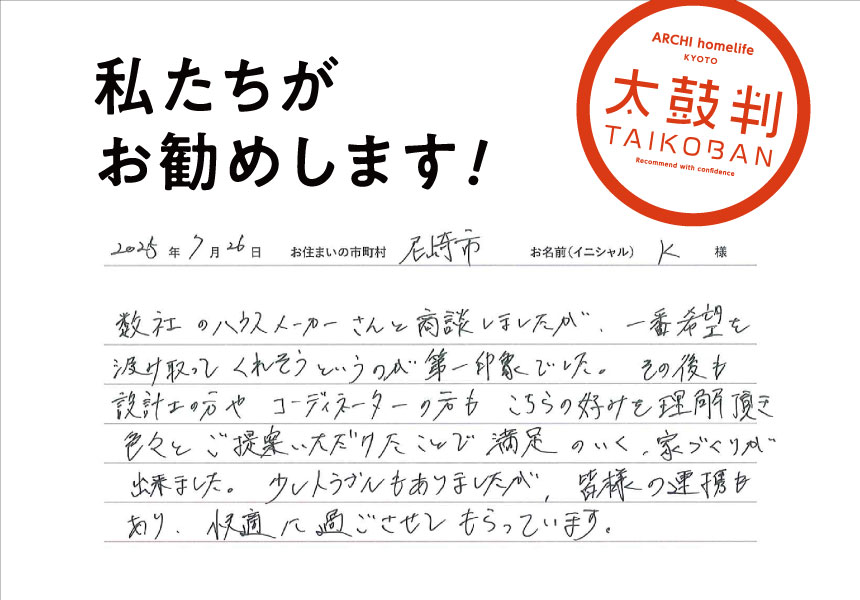 私たちが
お勧めします!
ARCHI homelife
KYOTO
太鼓判
TAIKOBAN
Recommend with confidence
2025年7月26日 お住まいの市町村 尼崎市 お名前(イニシャル) K 様
数社のハウスメーカーさんと商談しましたが、一番希望を
汲み取ってくれそうというのが第一印象でした。その後も
設計士の方や コーディネーターの方も こちらの好みを理解頂き
色々とご提案いただけたことで満足のいく、家づくりが
出来ました。少しトラブルもありましたが、皆様の連携も
あり、快適に過ごさせてもらっています。